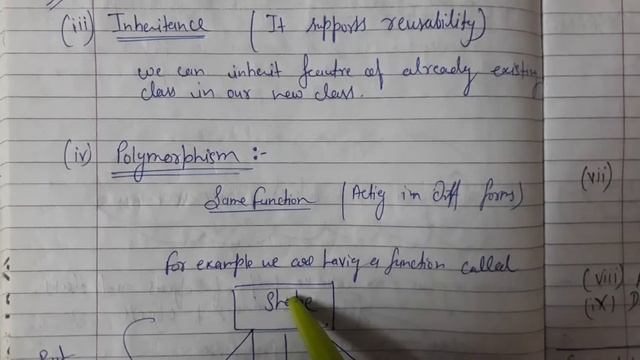 (iii) Inheritance (It supports reusability)
we can inherit feautre of already existing
class in our new class.
(iv) Polymorphism :-
Same function (Actig in diff forms)
for example we are havig a function called
Shape
(vii)
(viii)
(ix) D